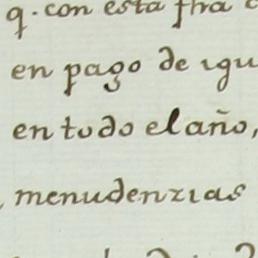 q. con esta fha
en pago de igu
en todo el año,
menudenzias